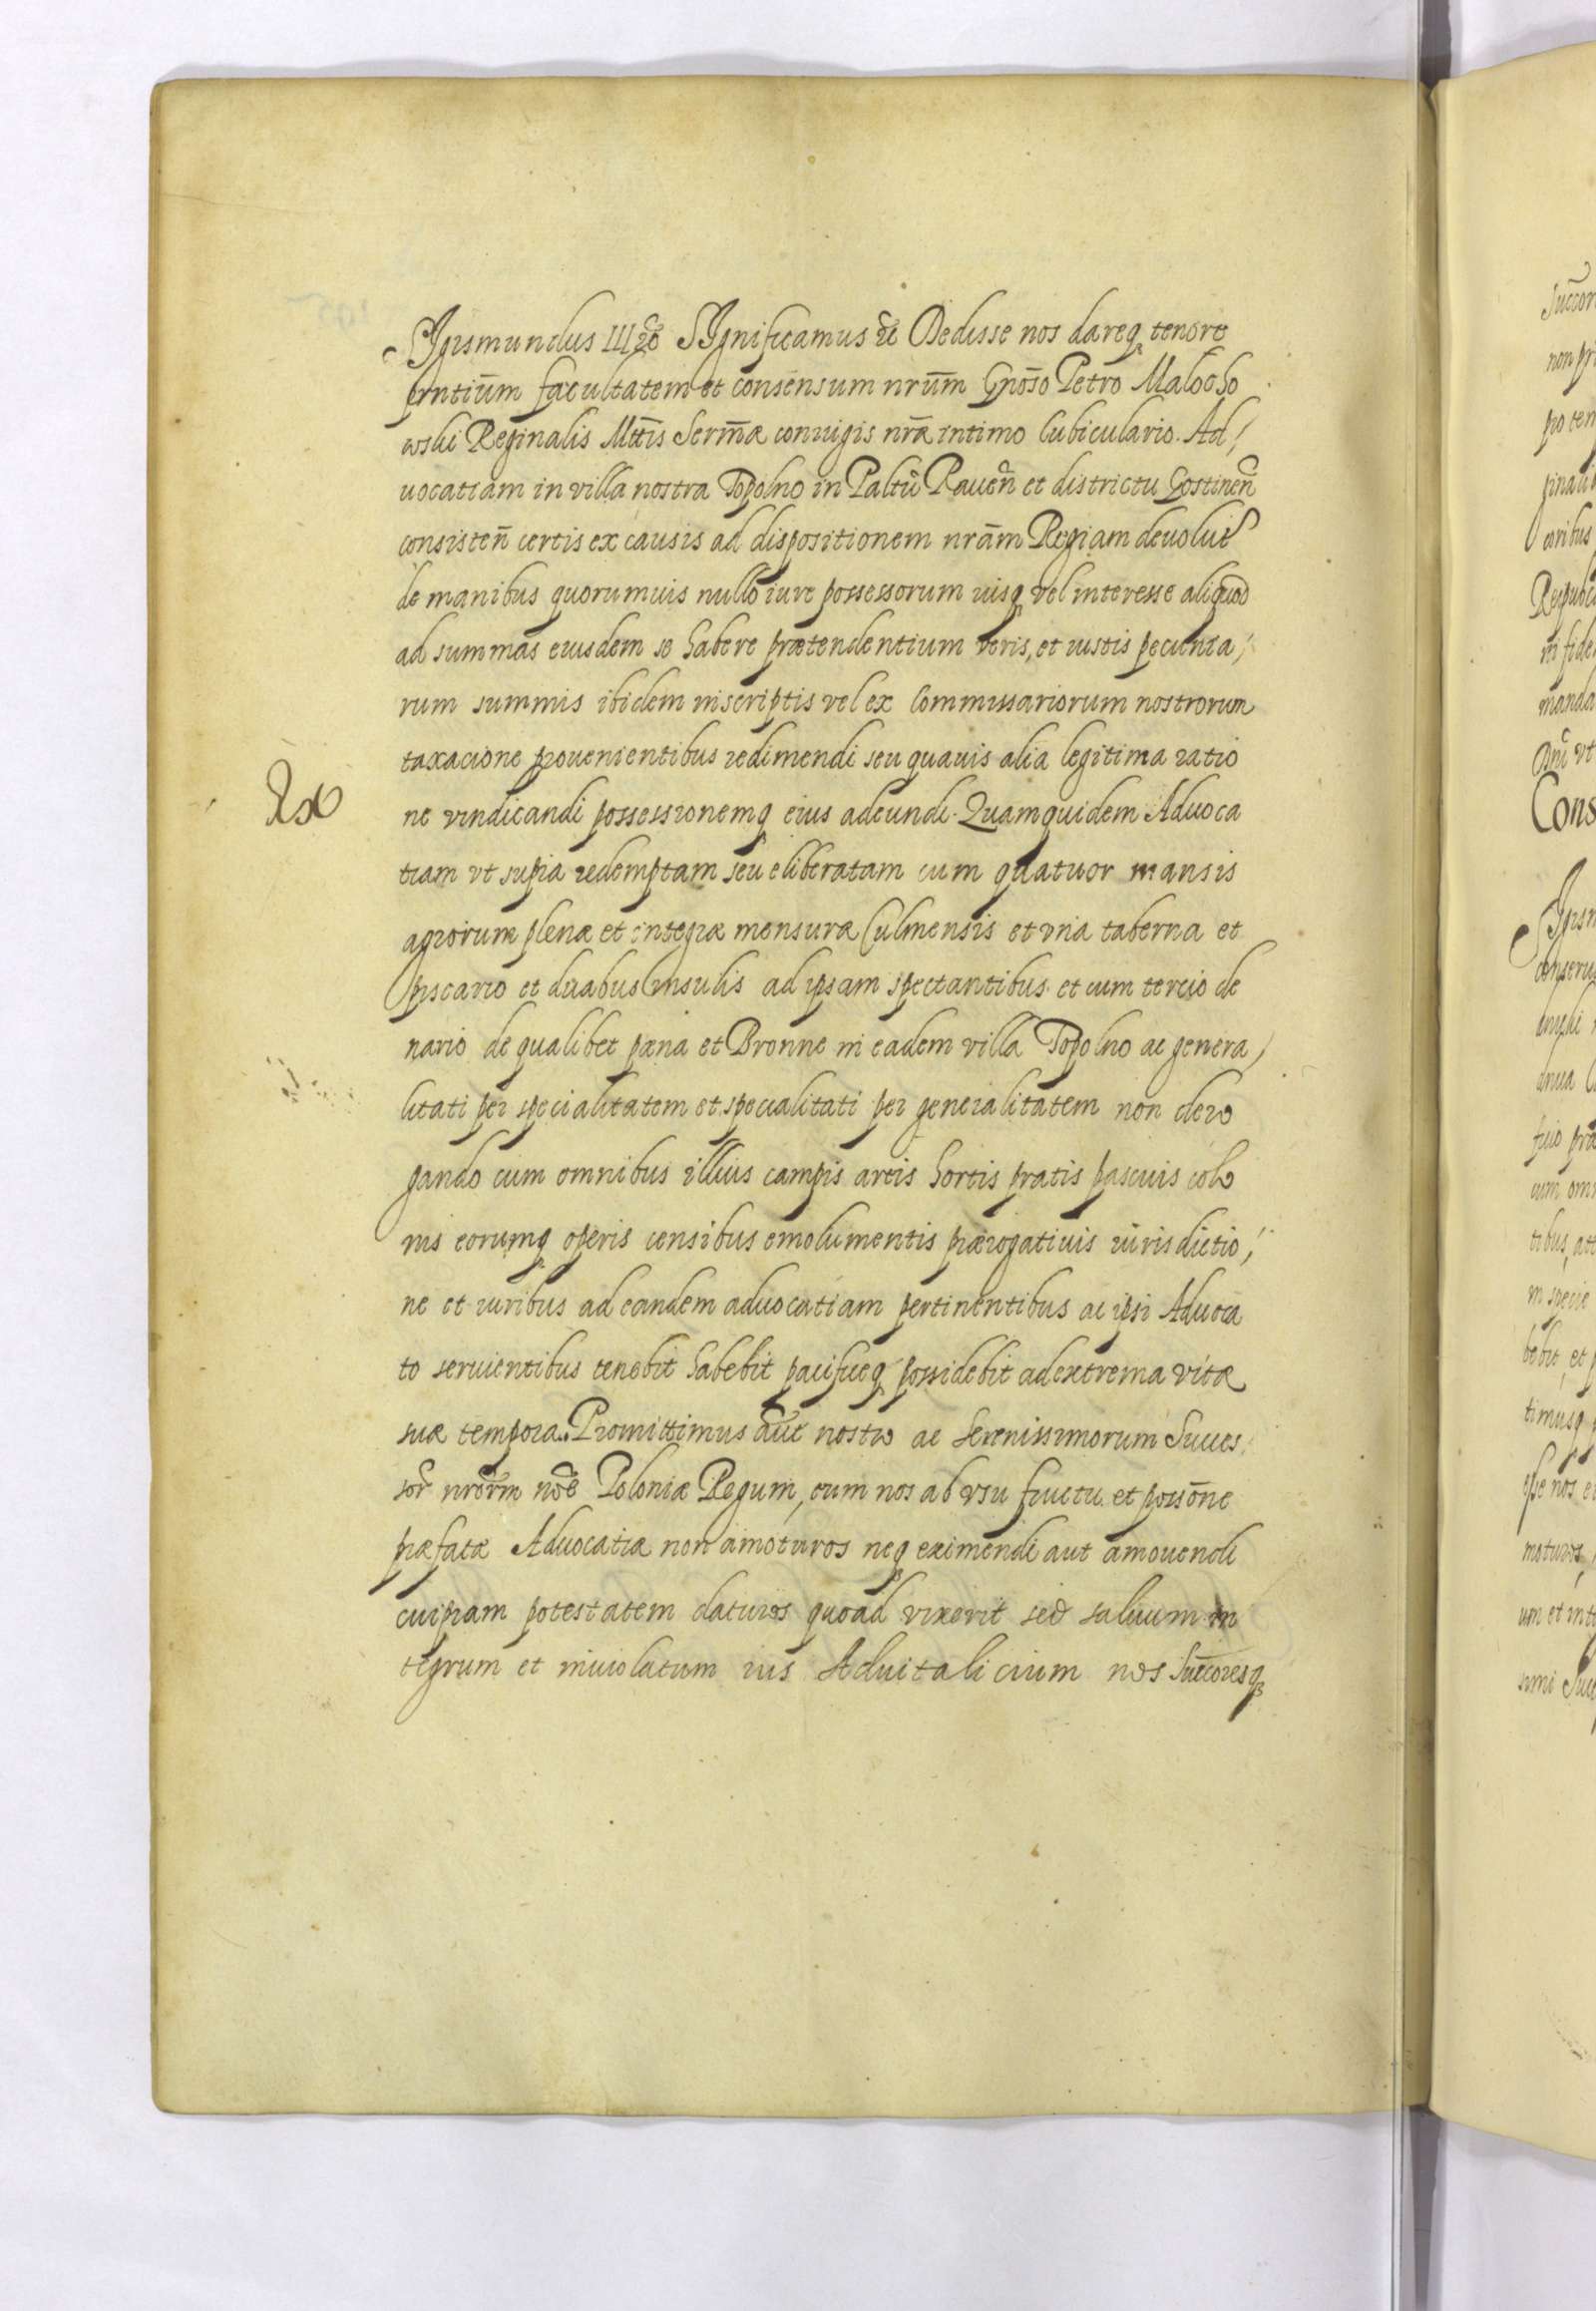 Sigismundus III etc Significamus etc Dedisse nos dareq tenore
pntium facultatem et consensum nrum Gnoso Petro Malocho
wski Reginalis Mttis Sermae coniugis nrae intimo Cubiculario. Ad/
uocatiam in villa nostra Topolno in Paltu Rauen et districtu Gostinen
consisten certis ex causis ad dispositionem nram Regiam devolut
de manibus quorumuis nullo iure possessorum iusq vel interesse aliquod
ad summas eiusdem se habere praetendentium veris, et iustis pecunia/
rum summis ibidem inscriptis vel ex Commissariorum nostrorum
taxacione prouenientibus redimendi seu quauis alia legitima ratio
ne vindicandi possessionemq eius adeundi. Quamquidem Aduoca
tiam vt supra redemptam seu eliberatam cum quatuor mansis
agrorum plenae et integrae mensurae Culmensis et vna taberna et
piscario et duabus insulis ad ipsam spectantibus et cum tercio de
nario de qualibet paena et Bronne in eadem villa Topolno ac genera/
litati per specialitatem et specialitati per generalitatem non dero
gando cum omnibus illius campis areis hortis pratis pascuis colo
nis eorumq operis censibus emolumentis praerogatiuis iurisdictio/
ne et iuribus ad eandem aduocatiam pertinentibus ac ipsi Aduoca
to seruientibus tenebit habebit pacificeq possidebit ad extrema vitae
suae tempora. Promittimus aut nostro ac Serenissimorum Succes
sor nrorm noe Poloniae Regum, eum nos ab vsu fructu et possone
praefatae Aduocatiae non amoturos neq eximendi aut amouendi
cuipiam potestatem daturos quoad vixerit sed saluum in
tegrum et inuiolatum ius Aduitalicium nos Succoresq